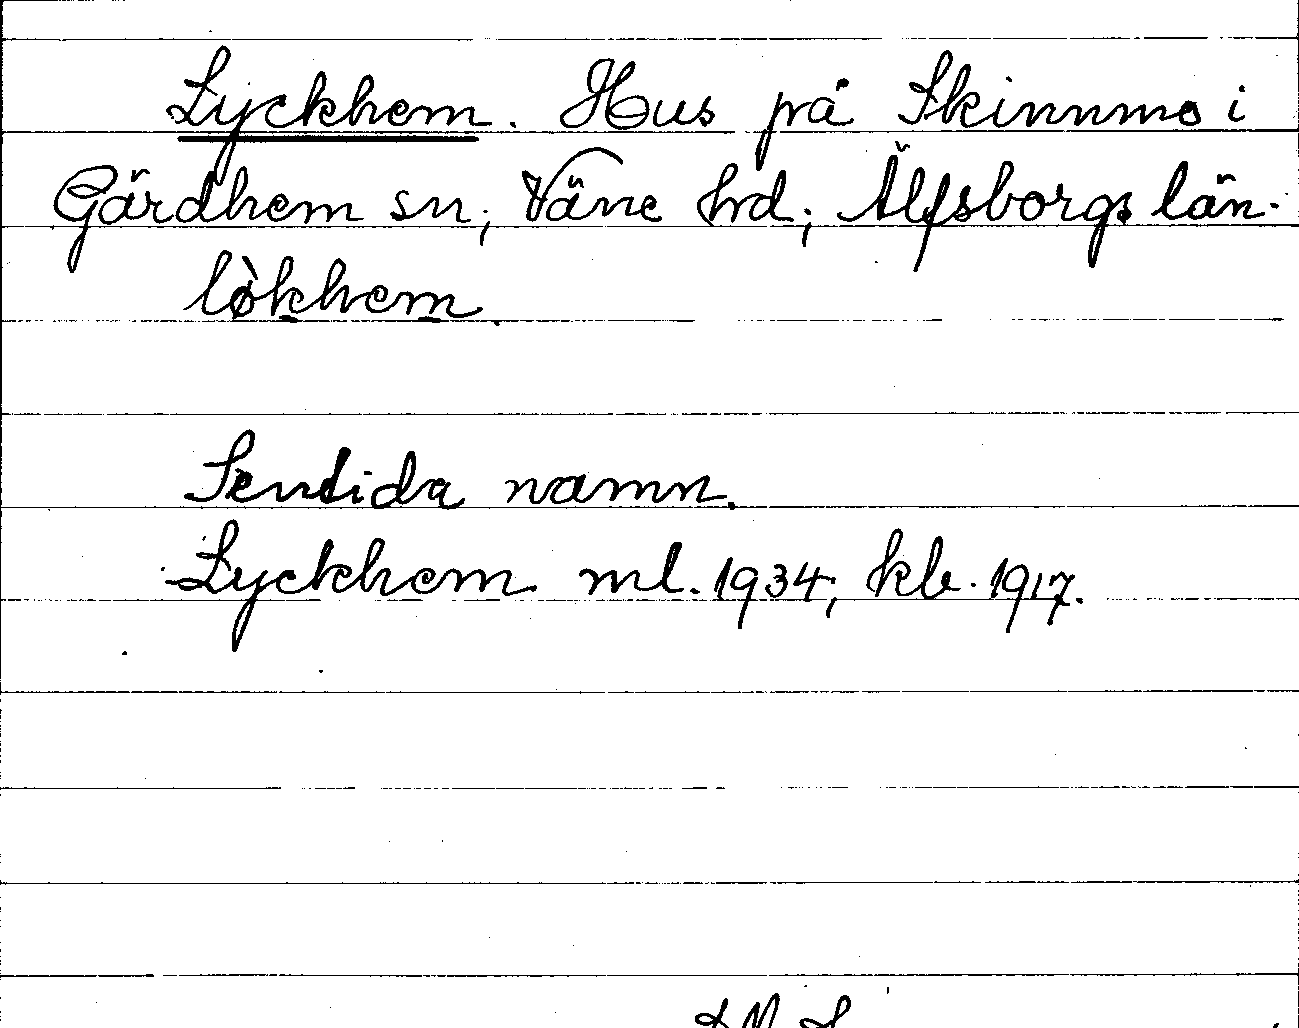 Lyckhem. Hus på Skinnmo i
Gärdhem sn; Väne hd; Älfsborgs län.
lø̀khem.
Sentida namn.
Lyckhem ml. 1934; kb. 1917.